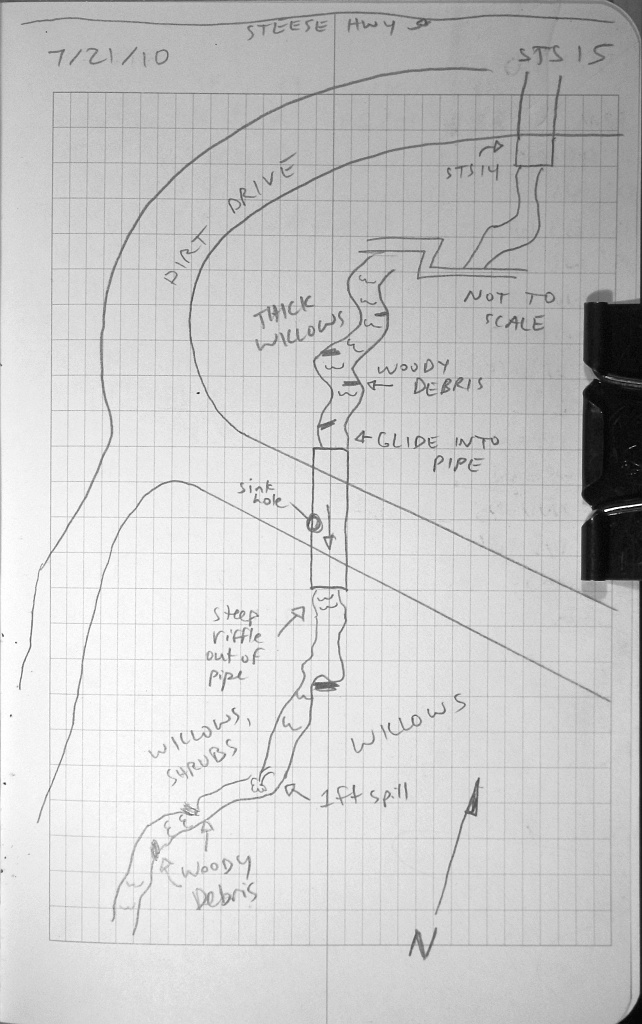 STEESE HWY
7/21/10
STS 15
STS 14
DIRT DRIVE
NOT TO
SCALE
THICK
WILLOWS
WOODY
DEBRIS
GLIDE INTO
PIPE
sink
hole
steep
riffle
out of
pipe
WILLOWS,
SHRUBS
WILLOWS
1ft spill
WOODY
Debris
N